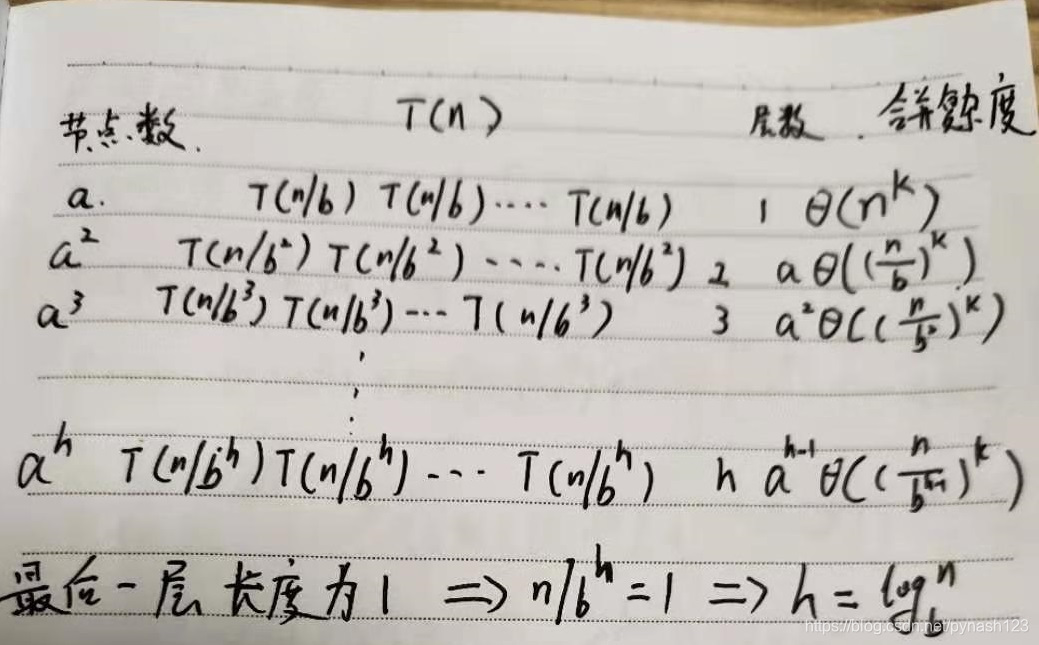 节点数. T(n) 层数. 合并复杂度
a. T(n/b) T(n/b) ···· T(n/b) 1 θ(n^k)
a² T(n/b²) T(n/b²) ····· T(n/b²) 2 aθ((n/b)^k)
a³ T(n/b³) T(n/b³) ··· T(n/b³) 3 a²θ((n/b²)^k)
⋮
a^h T(n/b^h) T(n/b^h) ··· T(n/b^h) h a^(h-1) θ((n/b^(h-1))^k)
最后一层长度为1 ⇒ n/b^h = 1 ⇒ h = log_b^n
https://blog.csdn.net/pynash123